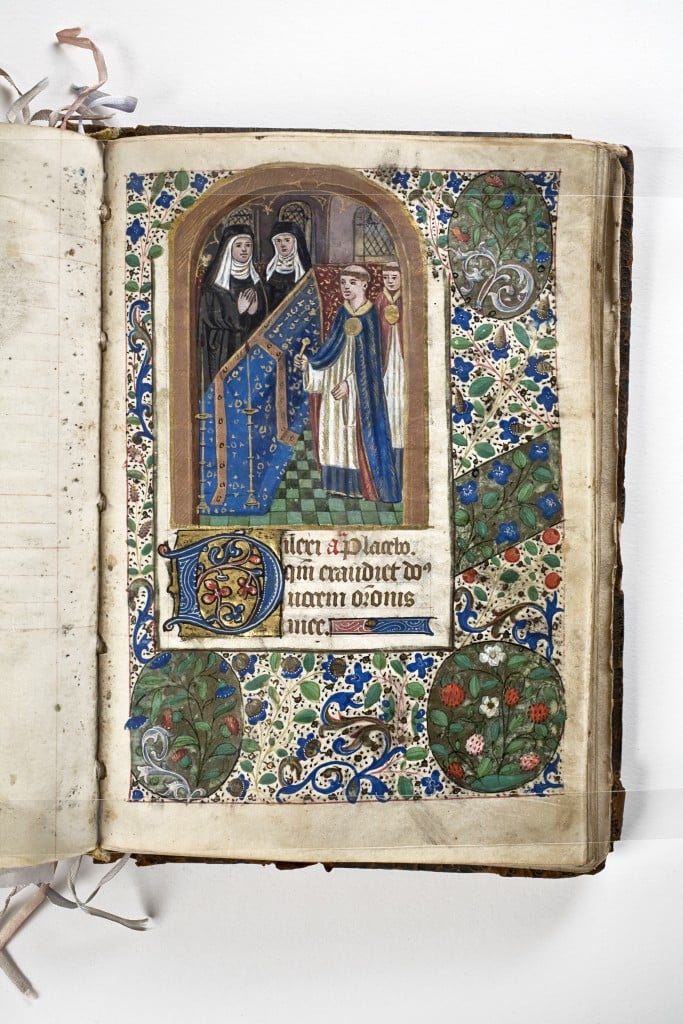 Dilexi añ Placebo.
qm̄ exaudiet doꝰ
uocem or̄onis
mee.